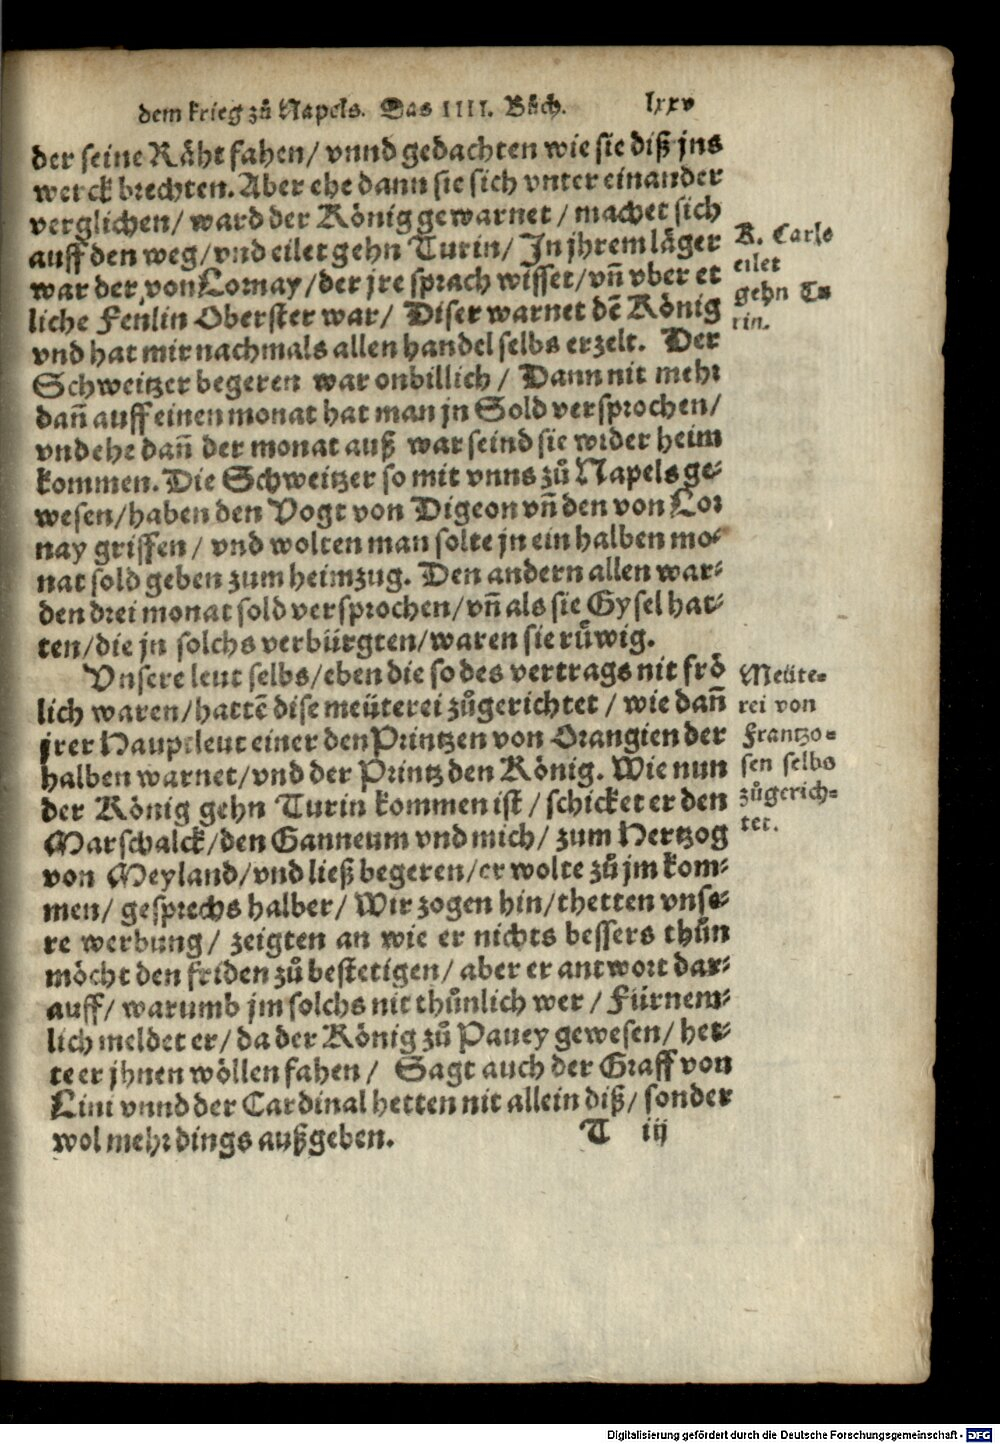 dem krieg zů Napels. Das IIII. Bůch. lxxv
der seine Räht fahen/ vnnd gedachten wie sie diß jns
werck brechten. Aber ehe dann sie sich vnter einander
verglichen/ ward der König gewarnet / machet sich
auff den weg/ vnd eilet gehn Turin/ Jn jhrem läger
war der von Lornay/ der jre sprach wisset/ vñ vber et
liche Fenlin Oberster war/ Diser warnet dē König
vnd hat mir nachmals allen handel selbs erzelt. Der
Schweitzer begeren war onbillich / Dann nit mehr
dañ auff einen monat hat man jn Sold versprochen/
vnd ehe dañ der monat auß war seind sie wider heim
kommen. Die Schweitzer so mit vnns zů Napels ge-
wesen/ haben den Vogt von Digeon vñ den von Lor
nay griffen / vnd wolten man solte jn ein halben mo-
nat sold geben zum heimzug. Den andern allen war-
den drei monat sold versprochen/ vñ als sie Gysel hat-
ten/ die jn solchs verbürgten/ waren sie růwig.
Vnsere leut selbs/ eben die so des vertrags nit frö
lich waren/ hattē dise meüterei zůgerichtet / wie dañ
jrer Hauptleut einer den Printzen von Orangien der
halben warnet/ vnd der Printz den König. Wie nun
der König gehn Turin kommen ist / schicket er den
Marschalck/ den Ganneum vnd mich/ zum Hertzog
von Meyland/ vnd ließ begeren/ er wolte zů jm kom-
men/ gesprechs halber/ Wir zogen hin/ thetten vnse-
re werbung/ zeigten an wie er nichts bessers thůn
möcht den friden zů bestetigen/ aber er antwort dar-
auff/ warumb jm solchs nit thůnlich wer / Fürnem-
lich meldet er/ da der König zů Pauey gewesen/ het-
te er jhnen wöllen fahen / Sagt auch der Graff von
Lini vnnd der Cardinal hetten nit allein diß/ sonder
wol mehr dings außgeben. T iij
K. Carle
eilet
gehn Tu
rin.
Meüte-
rei von
Frantzo-
sen selbs
zůgerich-
tet.
Digitalisierung gefördert durch die Deutsche Forschungsgemeinschaft - DFG